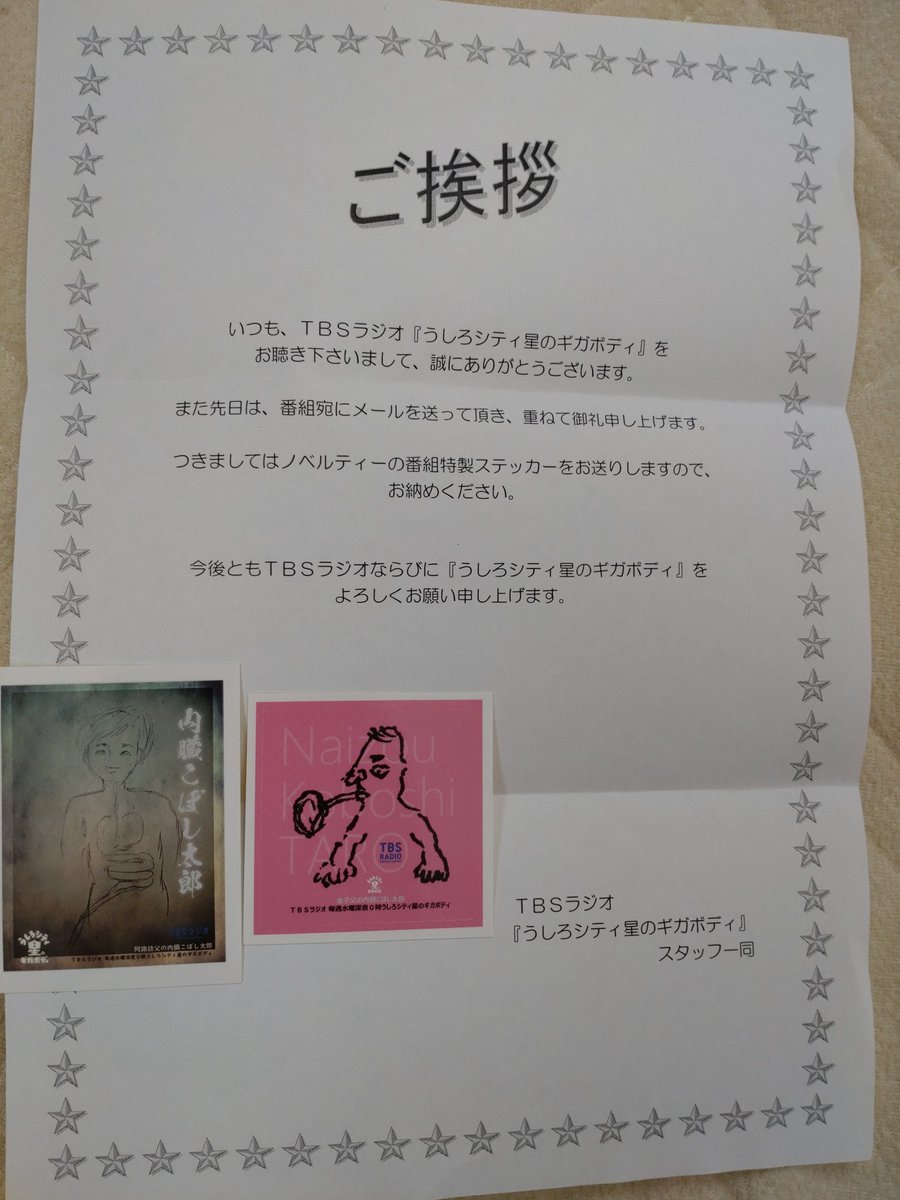 ご挨拶
いつも、TBSラジオ『うしろシティ星のギガボディ』を
お聴き下さいまして、誠にありがとうございます。
また先日は、番組宛にメールを送って頂き、重ねて御礼申し上げます。
つきましてはノベルティーの番組特製ステッカーをお送りしますので、
お納めください。
今後ともTBSラジオならびに『うしろシティ星のギガボディ』を
よろしくお願い申し上げます。
内臓こぼし太郎
TBSラジオ
うしろシティ
星の
ギガボディ
阿諏訪父の内臓こぼし太郎
TBSラジオ 毎週水曜深夜0時うしろシティ星のギガボディ
Naizou
Koboshi
TARO
TBS
RADIO
金子父の内臓こぼし太郎
TBSラジオ 毎週水曜深夜0時うしろシティ星のギガボディ
TBSラジオ
『うしろシティ星のギガボディ』
スタッフ一同